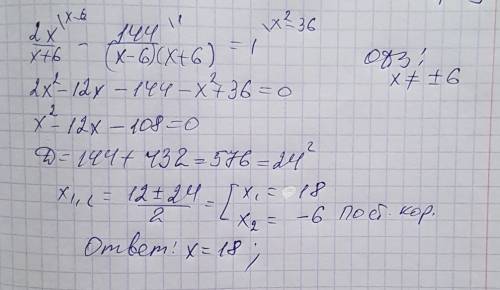 2x/(x+6) \x-6 - 144/((x-6)(x+6)) \1 = 1 \x²-36
ОДЗ:
x ≠ ±6
2x²-12x-144-x²+36=0
x²-12x-108=0
D=144+432=576=24²
x₁,₂ = (12±24)/2 = [x₁ = 18
x₂ = -6 пост. кор.
Ответ: x=18;